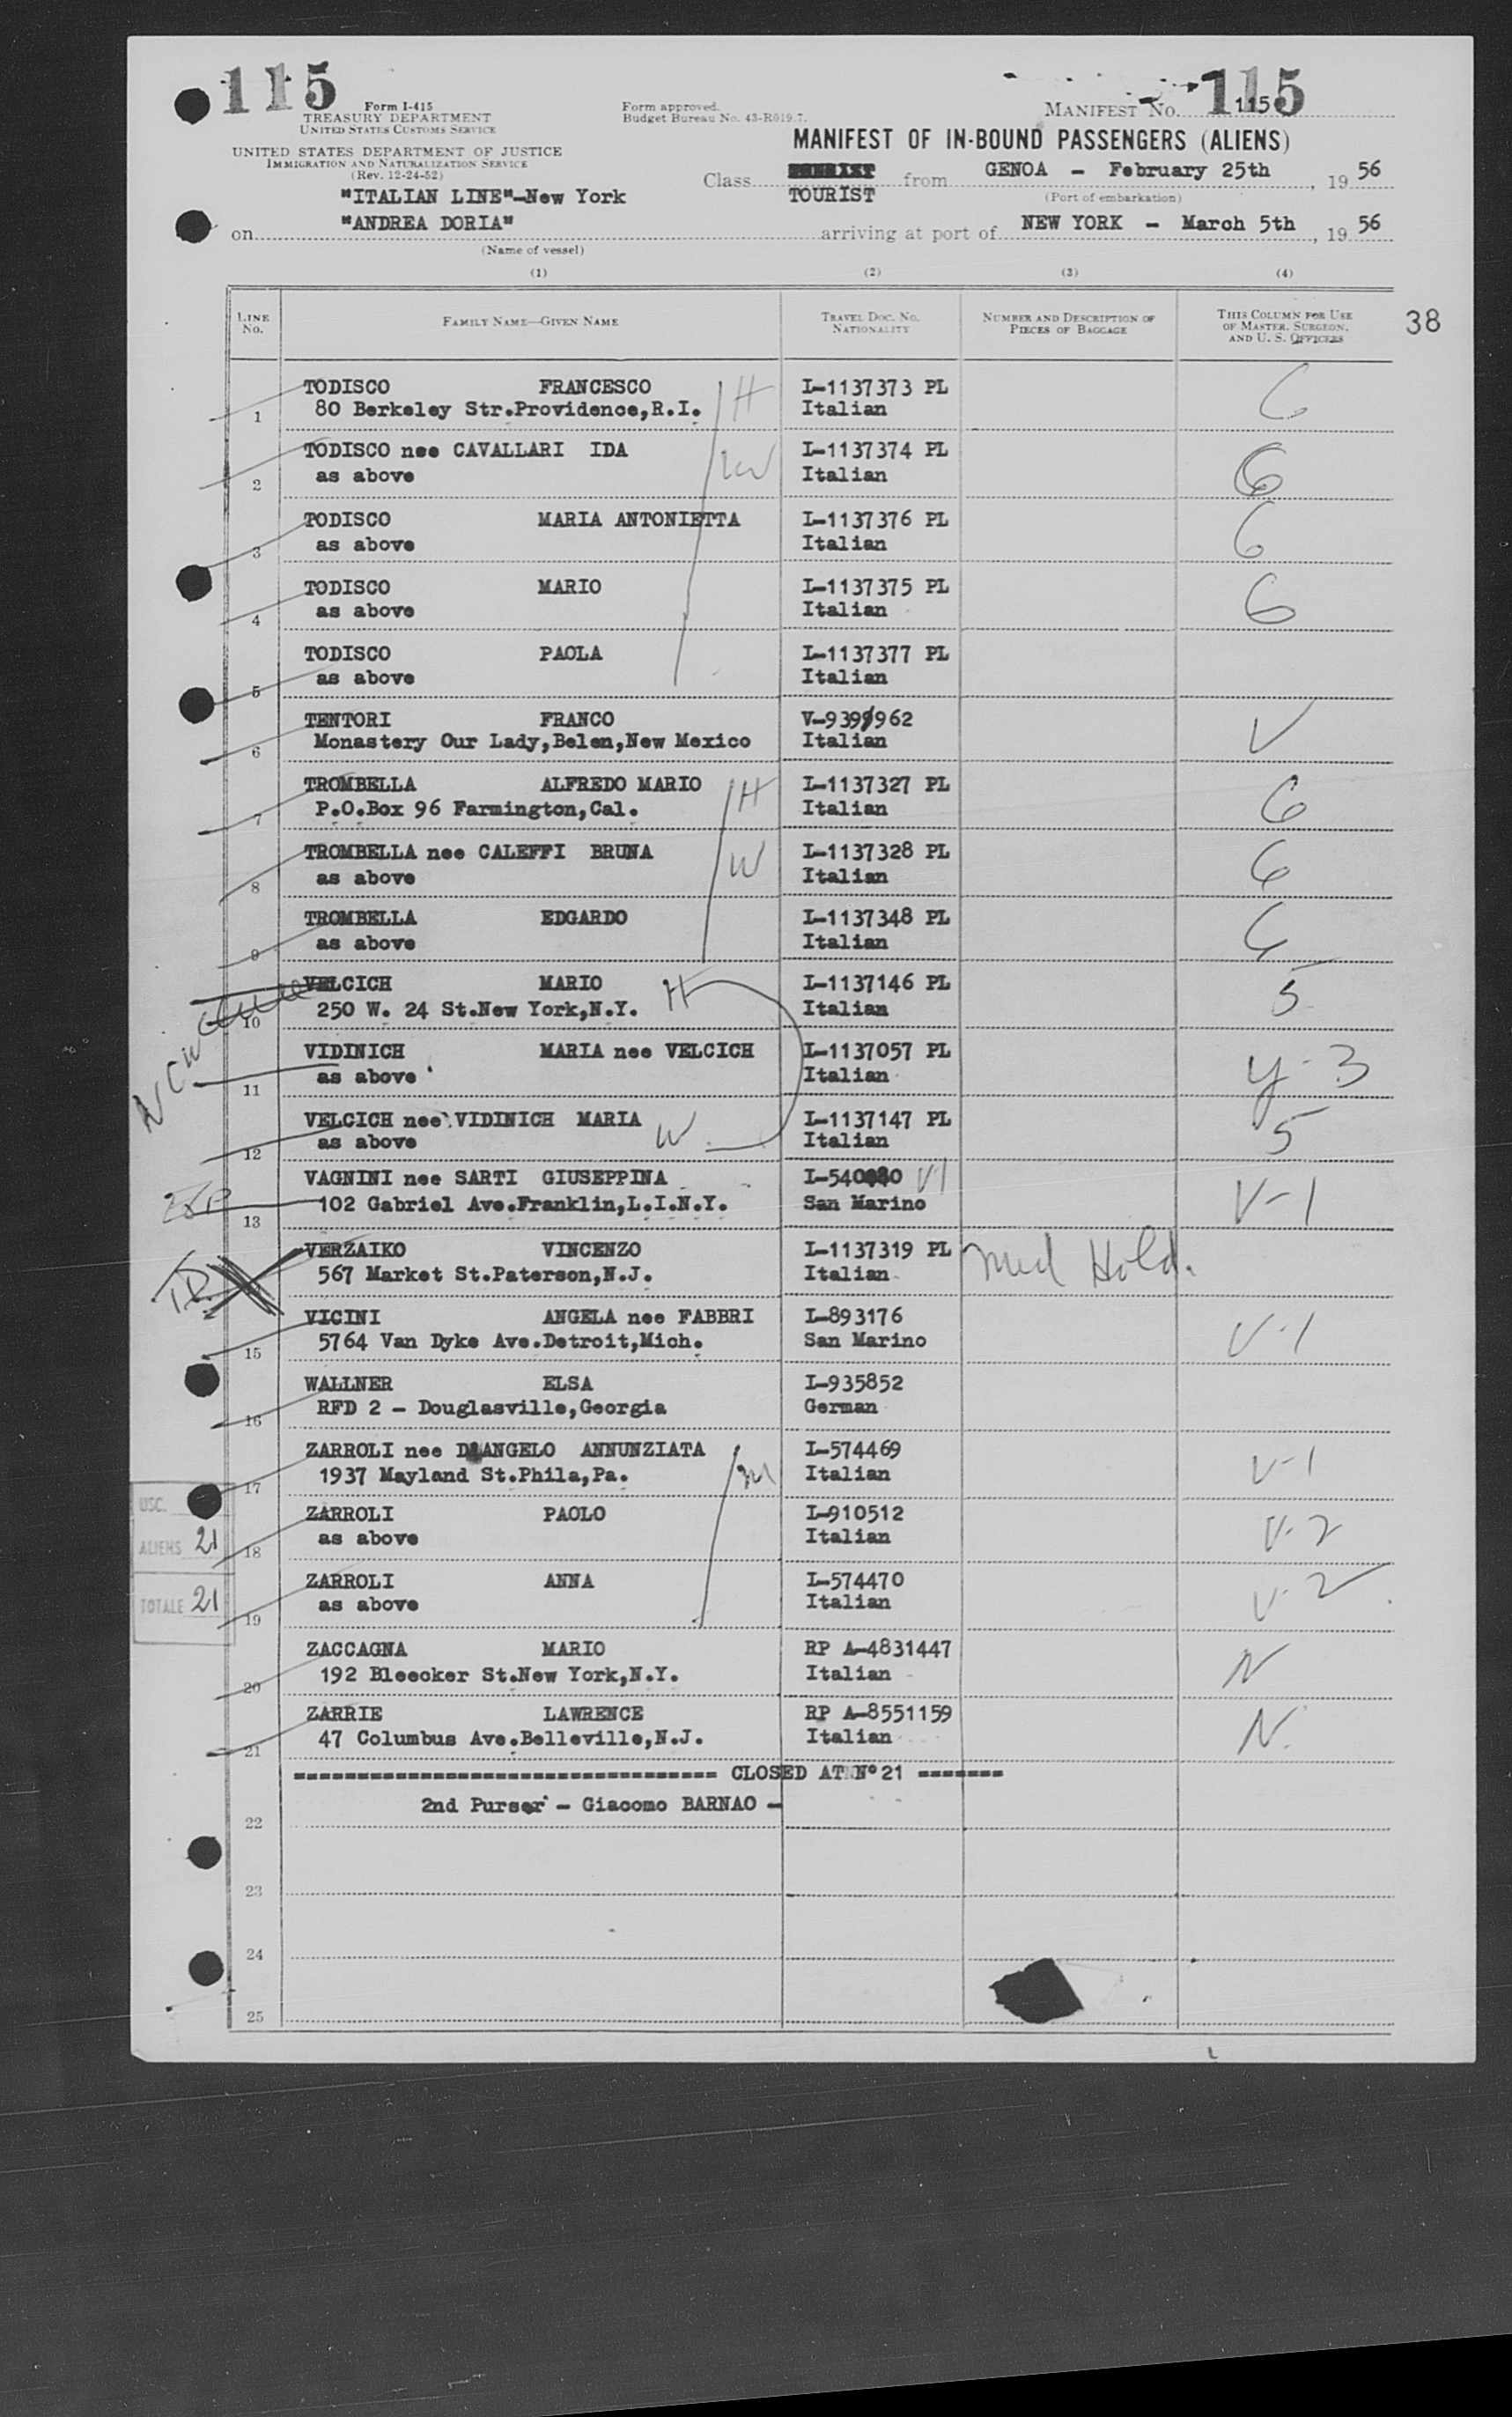 115
Form I-415
TREASURY DEPARTMENT
UNITED STATES CUSTOMS SERVICE
UNITED STATES DEPARTMENT OF JUSTICE
IMMIGRATION AND NATURALIZATION SERVICE
(Rev. 12-24-52)
Form approved.
Budget Bureau No. 43-R019.7.
MANIFEST No. 115
115
MANIFEST OF IN-BOUND PASSENGERS (ALIENS)
"ITALIAN LINE"-New York
Class TOURIST from GENOA - February 25th, 19 56
(Port of embarkation)
on "ANDREA DORIA" arriving at port of NEW YORK - March 5th, 19 56
(Name of vessel)
(1) (2) (3) (4)
LINE No. FAMILY NAME—GIVEN NAME TRAVEL DOC. No. NATIONALITY NUMBER AND DESCRIPTION OF PIECES OF BAGGAGE THIS COLUMN FOR USE OF MASTER, SURGEON, AND U. S. OFFICERS
38
1 TODISCO FRANCESCO H I-1137373 PL 6
80 Berkeley Str.Providence,R.I. Italian
2 TODISCO nee CAVALLARI IDA W I-1137374 PL 6
as above Italian
3 TODISCO MARIA ANTONIETTA I-1137376 PL 6
as above Italian
4 TODISCO MARIO I-1137375 PL 6
as above Italian
5 TODISCO PAOLA I-1137377 PL
as above Italian
6 TENTORI FRANCO V-9399962 V
Monastery Our Lady,Belen,New Mexico Italian
7 TROMBELLA ALFREDO MARIO H I-1137327 PL 6
P.O.Box 96 Farmington,Cal. Italian
8 TROMBELLA nee CALEFFI BRUNA W I-1137328 PL 6
as above Italian
9 TROMBELLA EDGARDO I-1137348 PL 6
as above Italian
10 VELCICH MARIO H I-1137146 PL 5
250 W. 24 St.New York,N.Y. Italian
11 VIDINICH MARIA nee VELCICH I-1137057 PL y-3
as above Italian
12 VELCICH nee VIDINICH MARIA W I-1137147 PL 5
as above Italian
13 VAGNINI nee SARTI GIUSEPPINA V1 V-1
102 Gabriel Ave.Franklin,L.I.N.Y. San Marino
VERZAIKO VINCENZO I-1137319 PL Med Hold.
567 Market St.Paterson,N.J. Italian
15 VICINI ANGELA nee FABBRI I-893176 V-1
5764 Van Dyke Ave.Detroit,Mich. San Marino
16 WALLNER ELSA I-935852
RFD 2 - Douglasville,Georgia German
17 ZARROLI nee D'ANGELO ANNUNZIATA M I-574469 V-1
1937 Mayland St.Phila,Pa. Italian
18 ZARROLI PAOLO I-910512 V-2
as above Italian
19 ZARROLI ANNA I-574470 V-2
as above Italian
20 ZACCAGNA MARIO RP A-4831447 N
192 Bleecker St.New York,N.Y. Italian
21 ZARRIE LAWRENCE RP A-8551159 N.
47 Columbus Ave.Belleville,N.J. Italian
================================= CLOSED AT N° 21 =======
22 2nd Purser - Giacomo BARNAO -
23
24
25
USC.
ALIENS 21
TOTALE 21